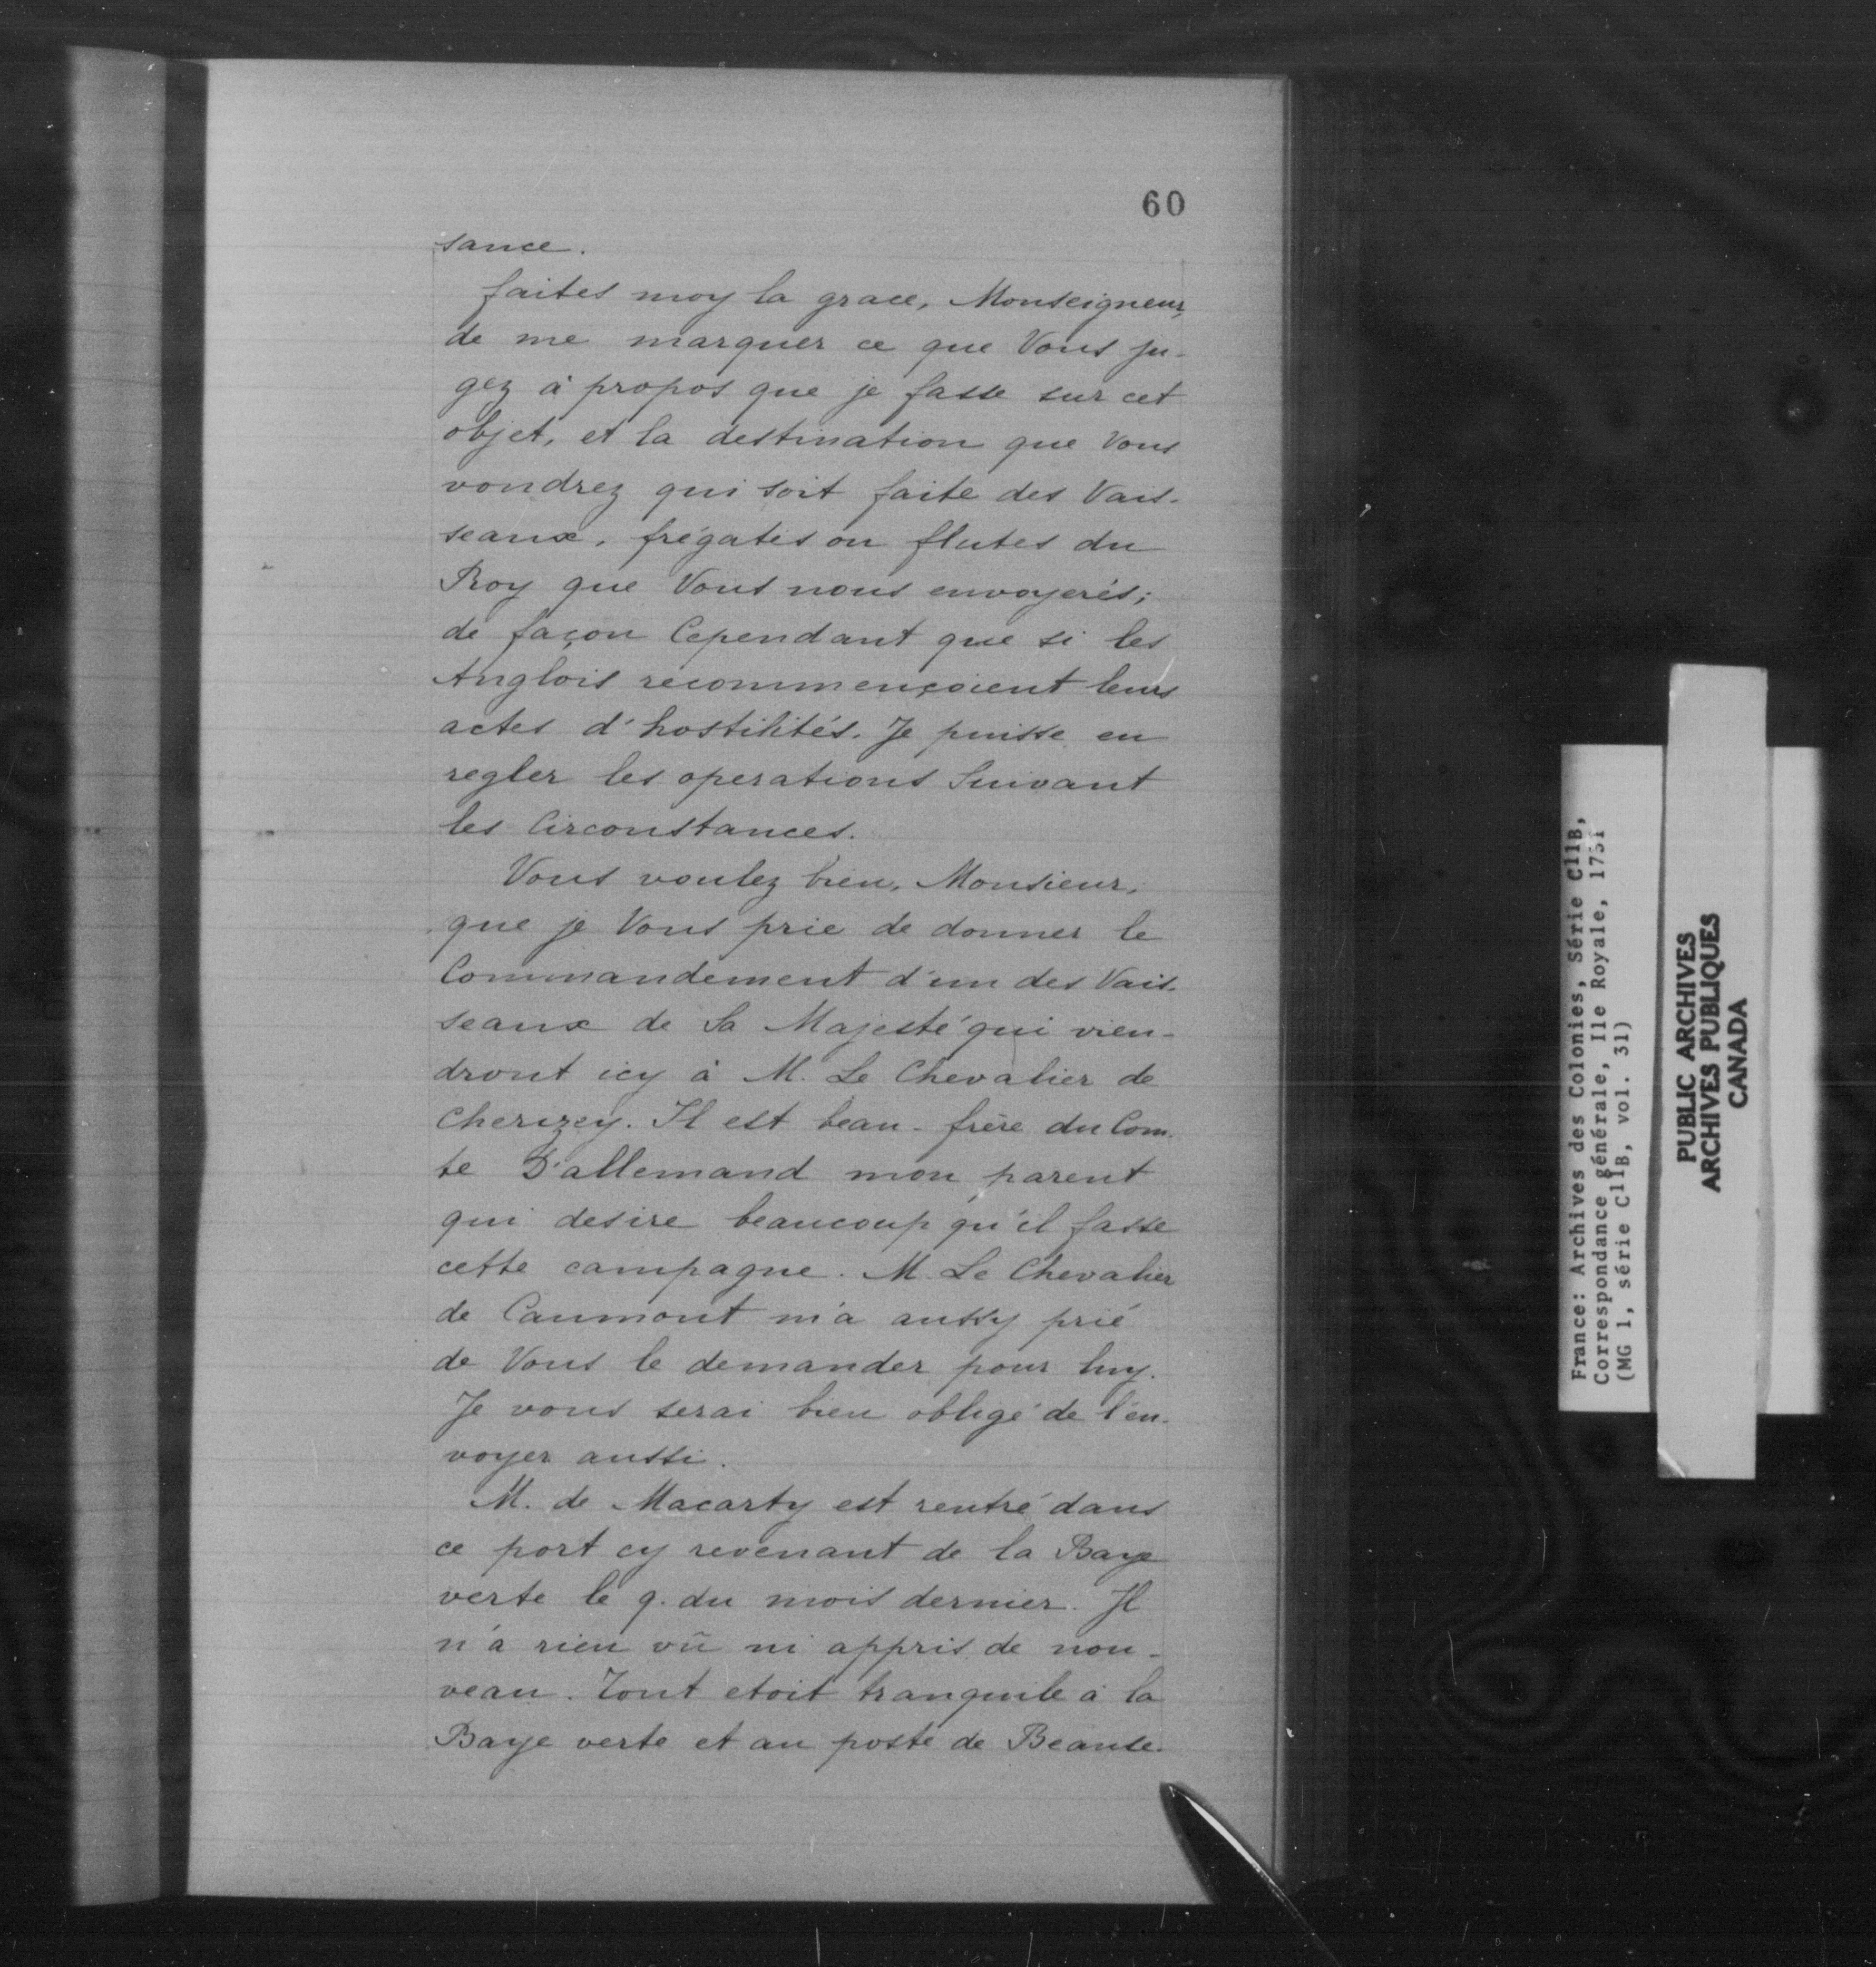 60
sance.
faites moy la grace, Monseigneur,
de me marquer ce que Vous ju-
gez à propos que je fasse sur cet
objet, et la destination que Vous
voudrez qui soit faite des Vais-
seaux, frégates ou flutes du
Roy que Vous nous envoyerés;
de façon Cependant que si les
Anglois recommençoient leurs
actes d'hostilités. Je puisse en
regler les operations Suivant
les Circonstances.
Vous voulez bien, Monsieur,
que je Vous prie de donner le
Commandement d'un des Vais-
seaux de Sa Majesté qui vien-
dront icy à M. Le Chevalier de
Cherizey. Il est beau-frère du Com-
te D'allemand mon parent
qui desire beaucoup qu'il fasse
cette campagne. M. Le Chevalier
de Caumont m'a aussy prié
de Vous le demander pour luy.
Je vous serai bien obligé de l'en-
voyer aussi.
M. de Macarty est rentré dans
ce port cy revenant de la Baye
verte le 9. du mois dernier. Il
n'a rien vû ni appris de nou-
veau. Tout etoit tranquile à la
Baye verte et au poste de Beause-
France: Archives des Colonies, Série C11B,
Correspondance générale, Ile Royale, 1751
(MG 1, série C11B, vol. 31)
PUBLIC ARCHIVES
ARCHIVES PUBLIQUES
CANADA